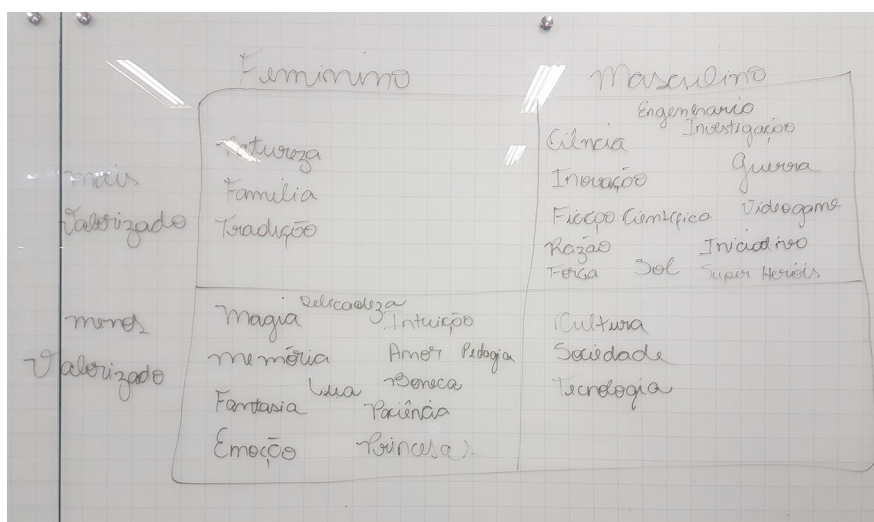 Feminino Masculino
mais
Valorizado
Natureza
Família
Tradição
Engenhario
Investigação
Ciência
Guerra
Inovação
Videogame
Ficção Científica
Razão Iniciativo
Força Sol Super Heróis
menos
Valorizado
Delicadeza
Magia Intuição
memória Amor Pedogia
Lua Boneca
Fantasia Paciência
Emoção Princesa
Cultura
Sociedade
Tecnologia